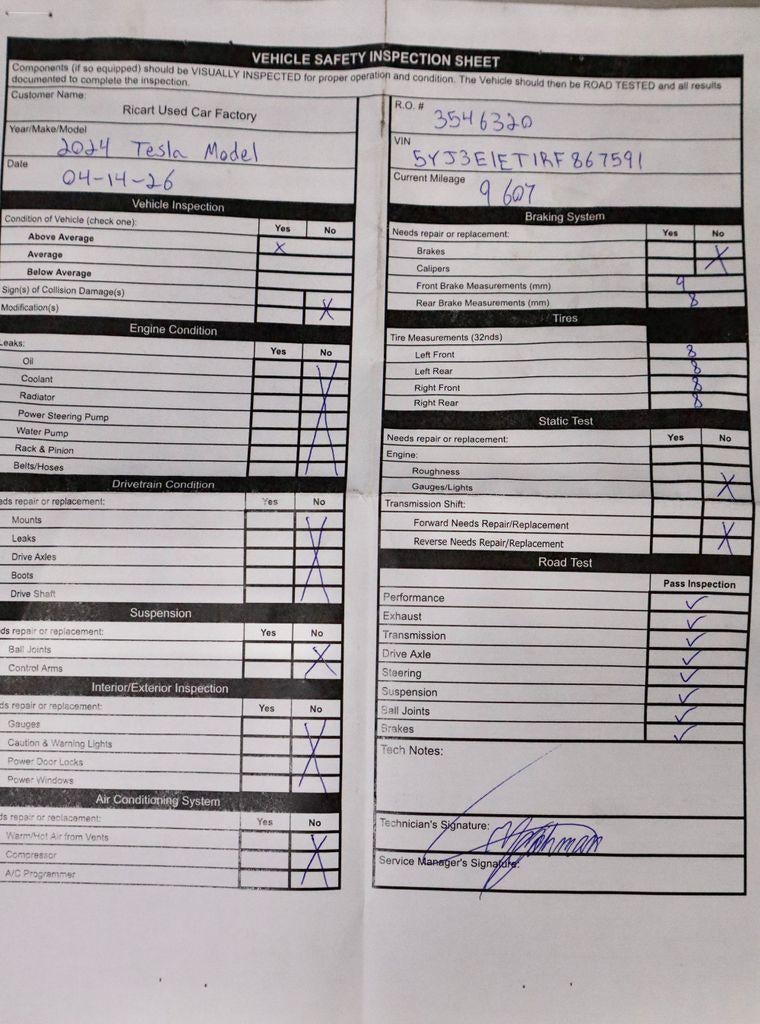 VEHICLE SAFETY INSPECTION SHEET
Components (if so equipped) should be VISUALLY INSPECTED for proper operation and condition. The Vehicle should then be ROAD TESTED and all results
documented to complete the inspection.
Customer Name:
Ricart Used Car Factory
Year/Make/Model
2024 Tesla Model
Date
04-14-26
Vehicle Inspection
Condition of Vehicle (check one):
Yes No
Above Average X
Average
Below Average
Sign(s) of Collision Damage(s)
Modification(s) X
Engine Condition
Leaks:
Yes No
Oil
Coolant
Radiator
Power Steering Pump X
Water Pump
Rack & Pinion
Belts/Hoses
Drivetrain Condition
eds repair or replacement: Yes No
Mounts
Leaks
Drive Axles X
Boots
Drive Shaft
Suspension
ds repair or replacement: Yes No
Ball Joints X
Control Arms
Interior/Exterior Inspection
ds repair or replacement: Yes No
Gauges
Caution & Warning Lights X
Power Door Locks
Power Windows
Air Conditioning System
ds repair or replacement: Yes No
Warm/Hot Air from Vents
Compressor X
A/C Programmer
R.O. #
3546320
VIN
5YJ3E1ET1RF867591
Current Mileage
9 607
Braking System
Needs repair or replacement: Yes No
Brakes X
Calipers
Front Brake Measurements (mm) 9
Rear Brake Measurements (mm) 8
Tires
Tire Measurements (32nds)
Left Front 8
Left Rear 8
Right Front 8
Right Rear 8
Static Test
Needs repair or replacement: Yes No
Engine:
Roughness
Gauges/Lights X
Transmission Shift:
Forward Needs Repair/Replacement X
Reverse Needs Repair/Replacement
Road Test
Pass Inspection
Performance ✓
Exhaust ✓
Transmission ✓
Drive Axle ✓
Steering ✓
Suspension ✓
Ball Joints ✓
Brakes ✓
Tech Notes:
Technician's Signature:
Service Manager's Signature: